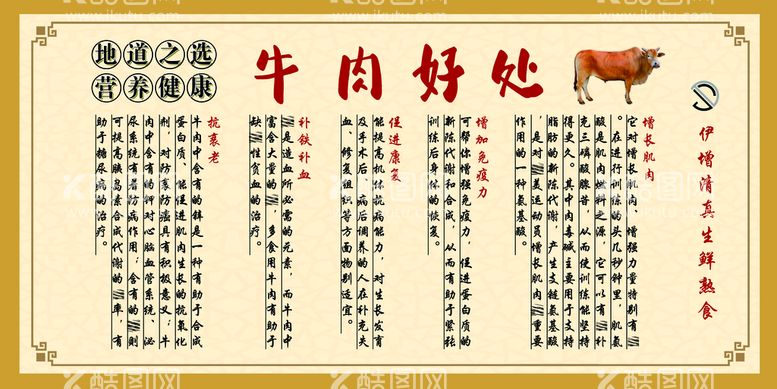 地道之选
营养健康
牛肉好处
伊增清真生鲜熟食
增长肌肉
它对增长肌肉、增强力量特别有
。在进行训练的头几秒钟里，肌氨
酸是肌肉燃料之源，它可以有补
充三磷酸腺苷，从而使训练能坚持
得更久。其中肉毒碱主要用于支持
脂肪的新陈代谢，产生支链氨基酸
，是对美运动员增长肌肉重要
作用的一种氨基酸。
增加免疫力
可帮你增强免疫力，促进蛋白质的
新陈代谢和合成，从而有助于紧张
训练后身体的恢复。
促进康复
能提高机体抗病能力，对生长发育
及手术后、病后调养的人在补充失
血、修复组织等方面特别适宜。
补铁补血
是造血所必需的元素，而牛肉中
富含大量的，多食用牛肉有助于
缺性贫血的治疗。
抗衰老
牛肉中含有的锌是一种有助于合成
蛋白质、能促进肌肉生长的抗氧化
剂，对防衰防癌具有积极意义；牛
肉中含有的钾对心脑血管系统、泌
尿系统有着防病作用；含有的则
可提高胰岛素合成代谢的率，有
助于糖尿病的治疗。